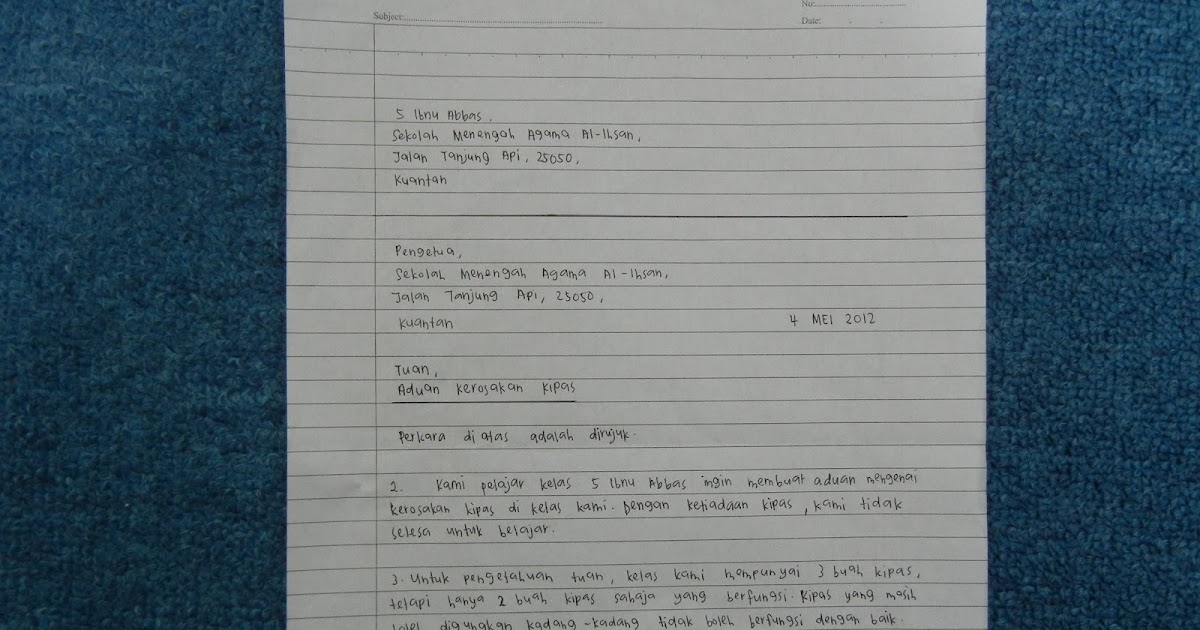 Subject:
No:
Date:
5 Ibnu Abbas,
Sekolah Menengah Agama Al-Ihsan,
Jalan Tanjung Api, 25050,
Kuantan
Pengetua,
Sekolah Menengah Agama Al-Ihsan,
Jalan Tanjung Api, 25050,
Kuantan 4 MEI 2012
Tuan,
Aduan kerosakan kipas
Perkara di atas adalah dirujuk.
2. Kami pelajar kelas 5 Ibnu Abbas ingin membuat aduan mengenai
kerosakan kipas di kelas kami. Dengan ketiadaan kipas, kami tidak
selesa untuk belajar.
3. Untuk pengetahuan tuan, kelas kami mempunyai 3 buah kipas,
tetapi hanya 2 buah kipas sahaja yang berfungsi. Kipas yang masih
boleh digunakan kadang-kadang tidak boleh berfungsi dengan baik.